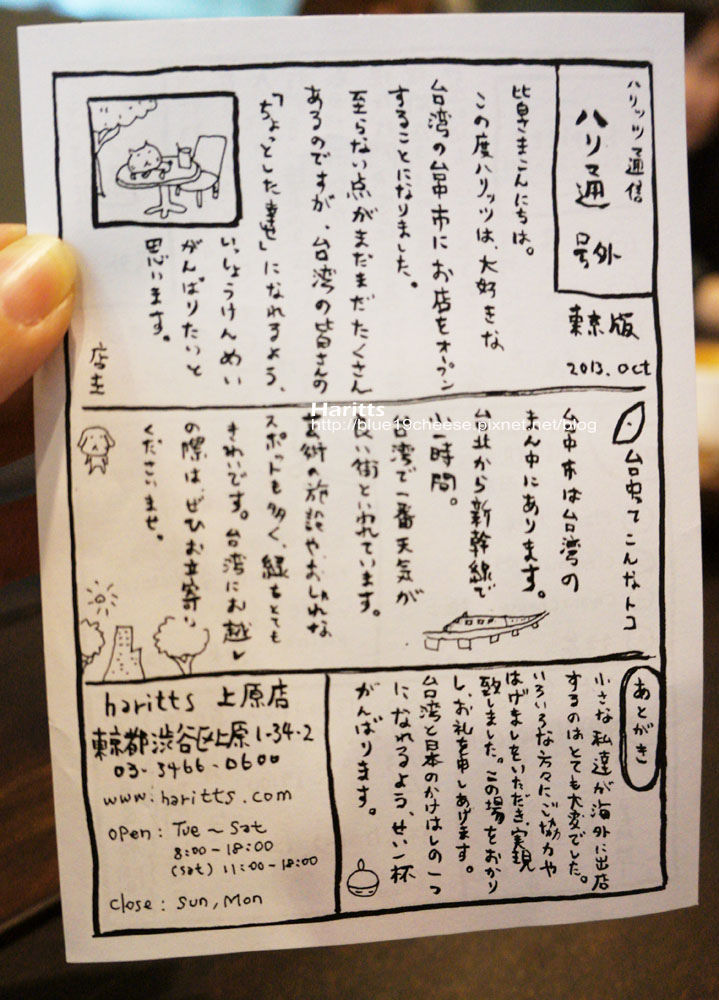 ハリッツ通信
ハリマ通
号外
東京版
2013.Oct
皆さまこんにちは。
この度ハリッツは、大好きな
台湾の台中市にお店をオープン
することになりました。
至らない点がまだまだたくさん
あるのですが、台湾の皆さんの
「ちょっとした幸せ」になれるよう、
いっしょうけんめい
がんばりたいと
思います。
店主
台中ってこんなトコ
台中市は台湾の
まん中にあります。
台北から新幹線で
小一時間。
台湾で一番天気が
良い街といわれています。
芸術の施設や、おしゃれな
スポットも多く、緑もとても
きれいです。台湾にお越し
の際は、ぜひお立寄り
くださいませ。
あとがき
小さな私達が海外に出店
するのはとても大変でした。
いろいろな方々にご協力や
はげましをいただき、実現
致しました。この場をおかり
し、お礼を申しあげます。
台湾と日本のかけはしの一つ
になれるよう、せい一杯
がんばります。
haritts 上原店
東京都渋谷区上原1-34-2
03-3466-0600
www.haritts.com
open: Tue~Sat
8:00-18:00
(sat) 11:00-18:00
close: Sun, Mon
Haritts
http://blue19cheese.pixnet.net/blog